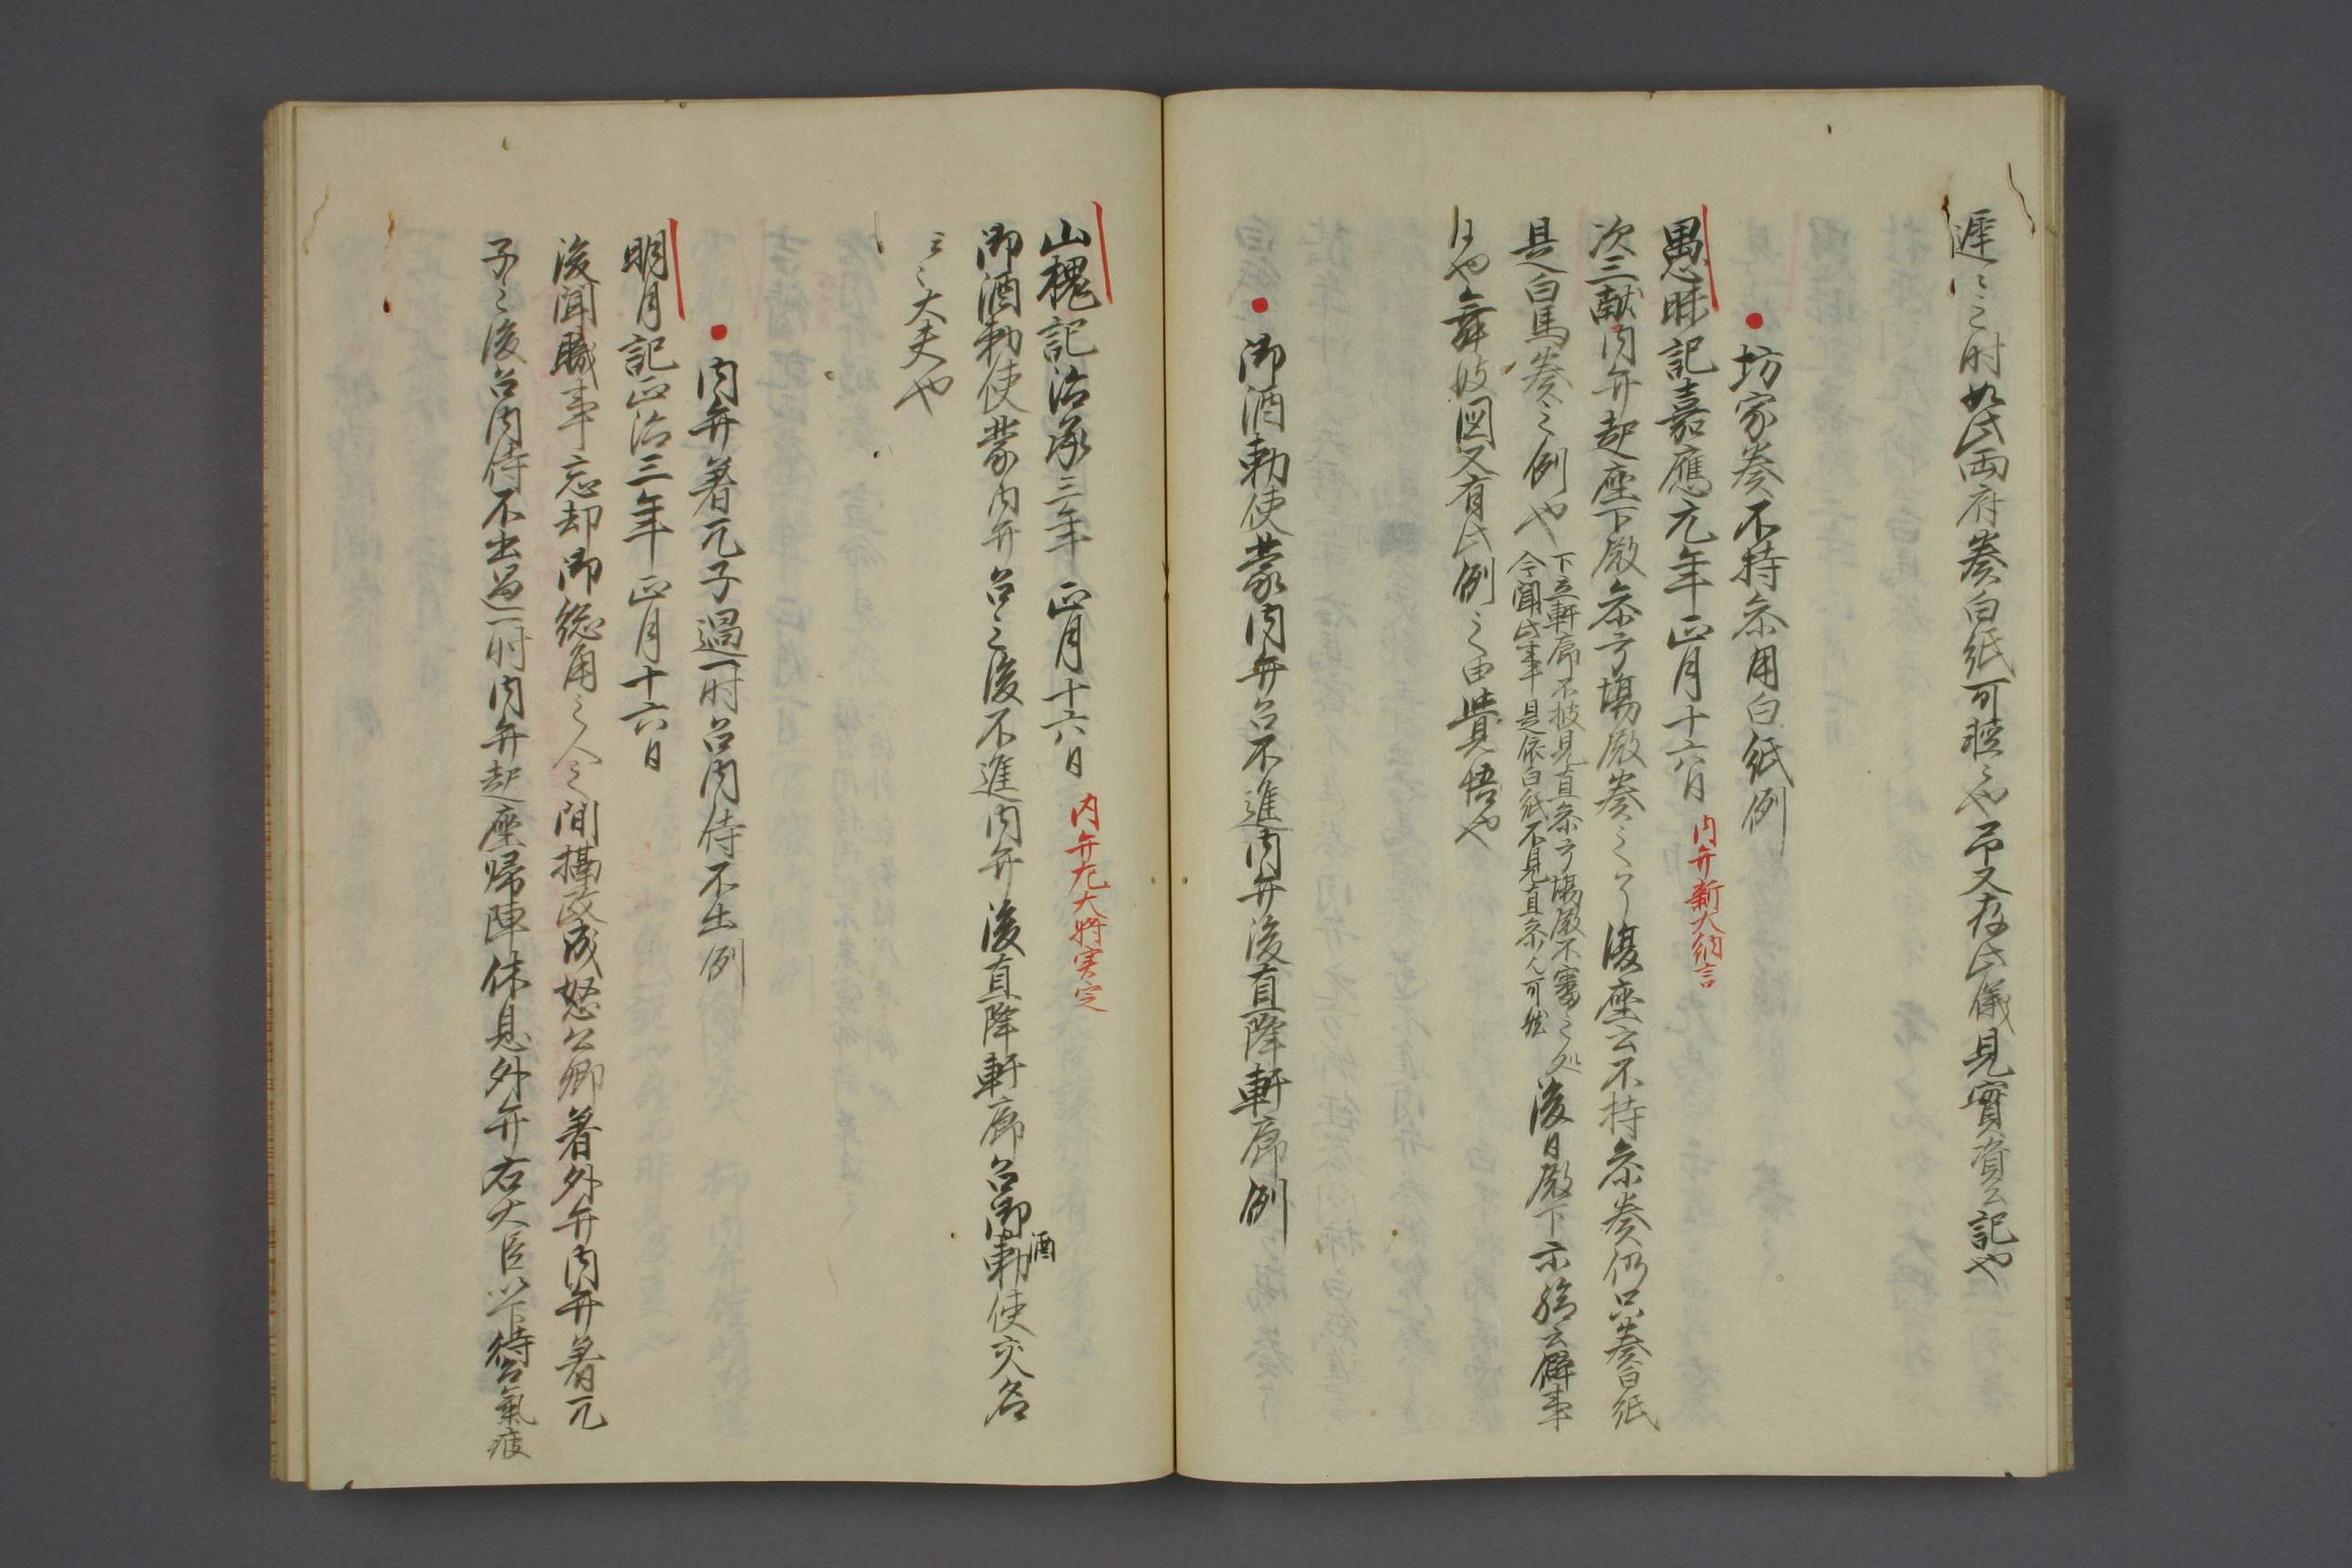 遅々之時如此両府奏白紙可軽々也予又存此儀見實資公記也
坊家奏不持参用白紙例
愚昧記嘉應元年正月十六日 内弁新大納言
次三献内弁起座下殿参弓場殿奏之了復座云不持参奏仍只奏白紙
是白馬奏之例也 下立軒廊不披見直参弓場殿不審之処
今聞此事是依白紙不見直参尤可然 後日殿下示給云僻事
也舞妓図又有此例之由覚悟也
御酒勅使蒙内弁召不進内弁後直降軒廊例
山槐記治承三年正月十六日 内弁左大将実定
御酒勅使蒙内弁召之後不進内弁後直降軒廊召御酒勅使交名
云々大夫也
内弁着兀子過一時召内侍不出例
明月記正治三年正月十六日
後聞職事忘却御総角之人之間摂政成怒公卿着外弁内弁着兀
子之後召内侍不出過一時内弁起座帰陣休息外弁右大臣以下待召氣疲